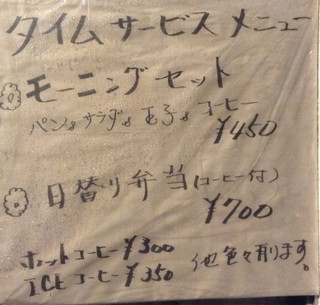 タイムサービスメニュー
モーニングセット
パン。サラダ。玉子。コーヒー
¥450
日替り弁当(コーヒー付)
¥700
ホットコーヒー¥300
ICEコーヒー¥350
他色々有ります。